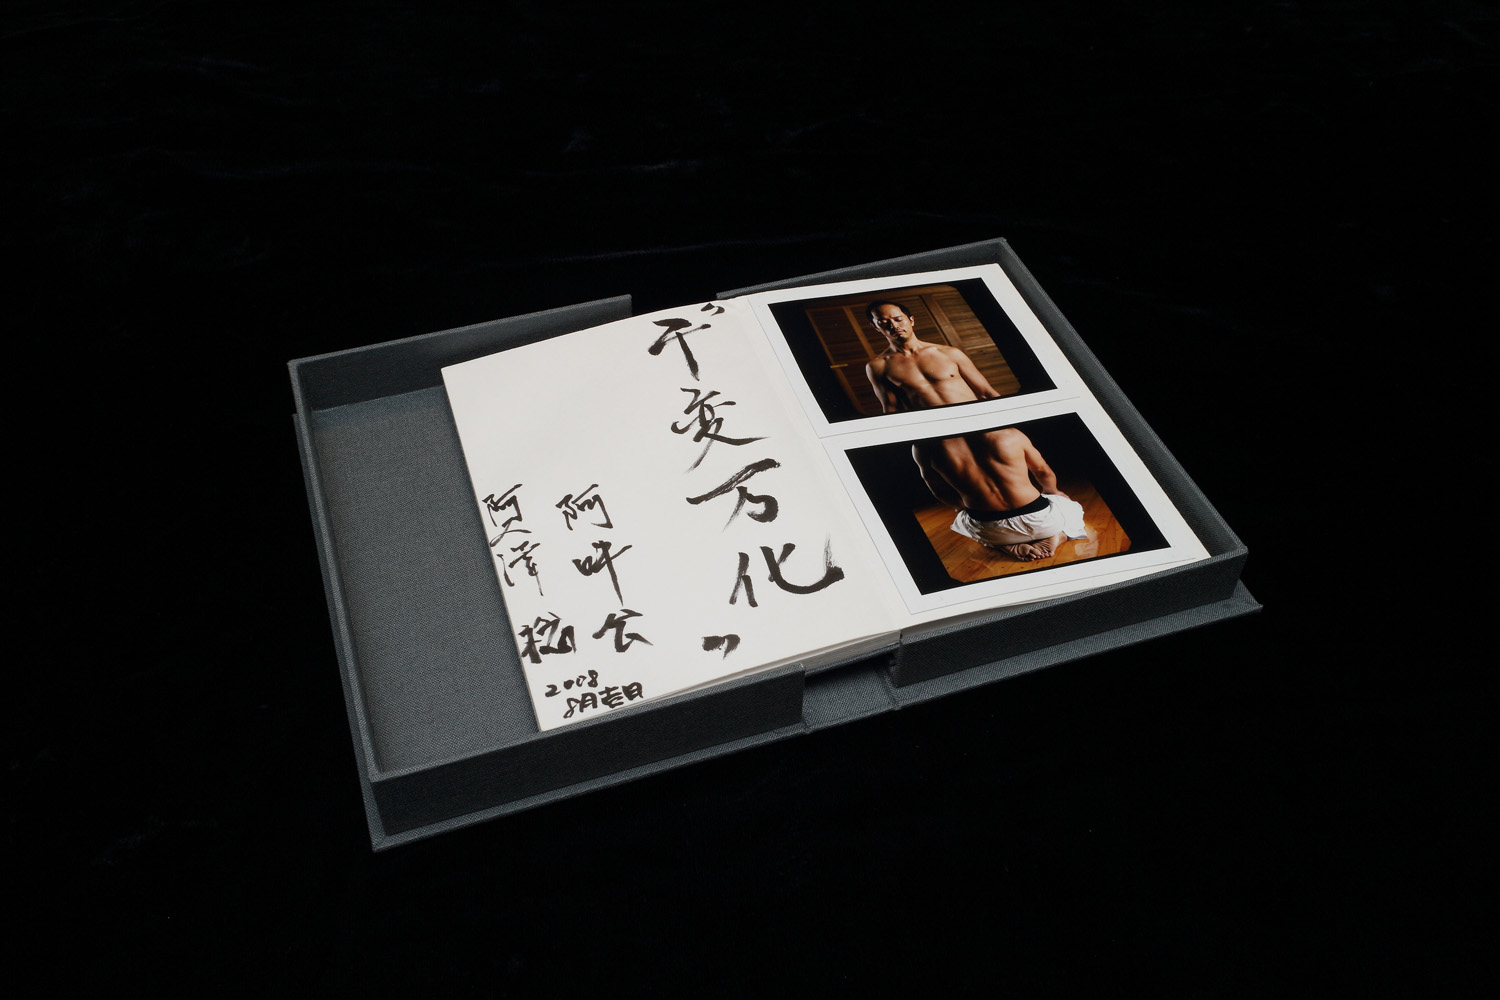 “千変万化”
阿吽会
阿久澤 稔
2008
8月壱日